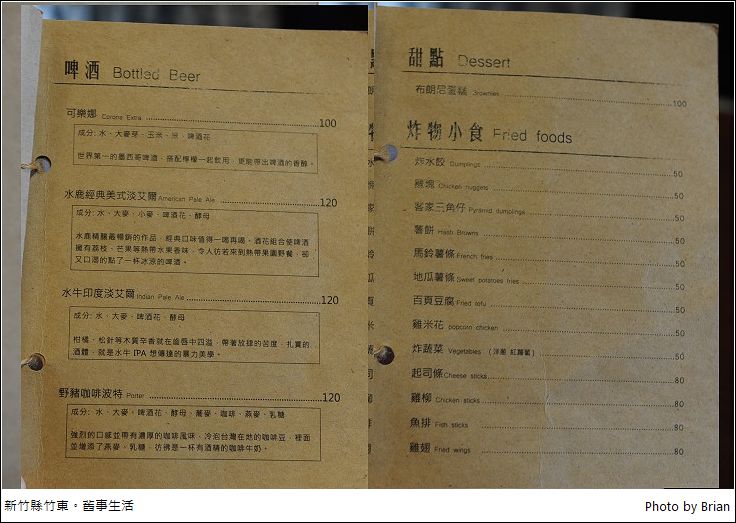 啤酒 Bottled Beer
可樂娜 Corona Extra 100
成分: 水、大麥芽、玉米、米、啤酒花
世界第一的墨西哥啤酒，搭配檸檬一起飲用，更能帶出啤酒的香醇。
水鹿經典美式淡艾爾 American Pale Ale 120
成分: 水、大麥、小麥、啤酒花、酵母
水鹿精釀最暢銷的作品，經典口味值得一喝再喝。酒花組合使啤酒
擁有荔枝、芒果等熱帶水果香味，令人彷若來到熱帶果園野餐，卻
又口渴的點了一杯冰涼的啤酒。
水牛印度淡艾爾 Indian Pale Ale 120
成分: 水、大麥、啤酒花、酵母
柑橘、松針等木質辛香就在齒唇中四溢，帶著放肆的苦度，扎實的
酒體，就是水牛 IPA 想傳達的暴力美學。
野豬咖啡波特 Porter 120
成分: 水、大麥、啤酒花、酵母、蕎麥、咖啡、燕麥、乳糖
強烈的口感並帶有濃厚的咖啡風味，冷泡台灣在地的咖啡豆，裡面
並增添了燕麥、乳糖，彷彿是一杯有酒精的咖啡牛奶。
甜點 Dessert
布朗尼蛋糕 Brownies 100
炸物小食 Fried foods
炸水餃 Dumplings 50
雞塊 Chicken nuggets 50
客家三角仔 Pyramid dumplings 50
薯餅 Hash Browns 50
馬鈴薯條 French fries 50
地瓜薯條 Sweet potatoes fries 50
百頁豆腐 Fried tofu 50
雞米花 popcorn chicken 50
炸蔬菜 Vegetables (洋蔥 紅蘿蔔) 50
起司條 Cheese sticks 80
雞柳 Chicken sticks 80
魚排 Fish sticks 80
雞翅 Fried wings 80
新竹縣竹東。舊事生活
Photo by Brian